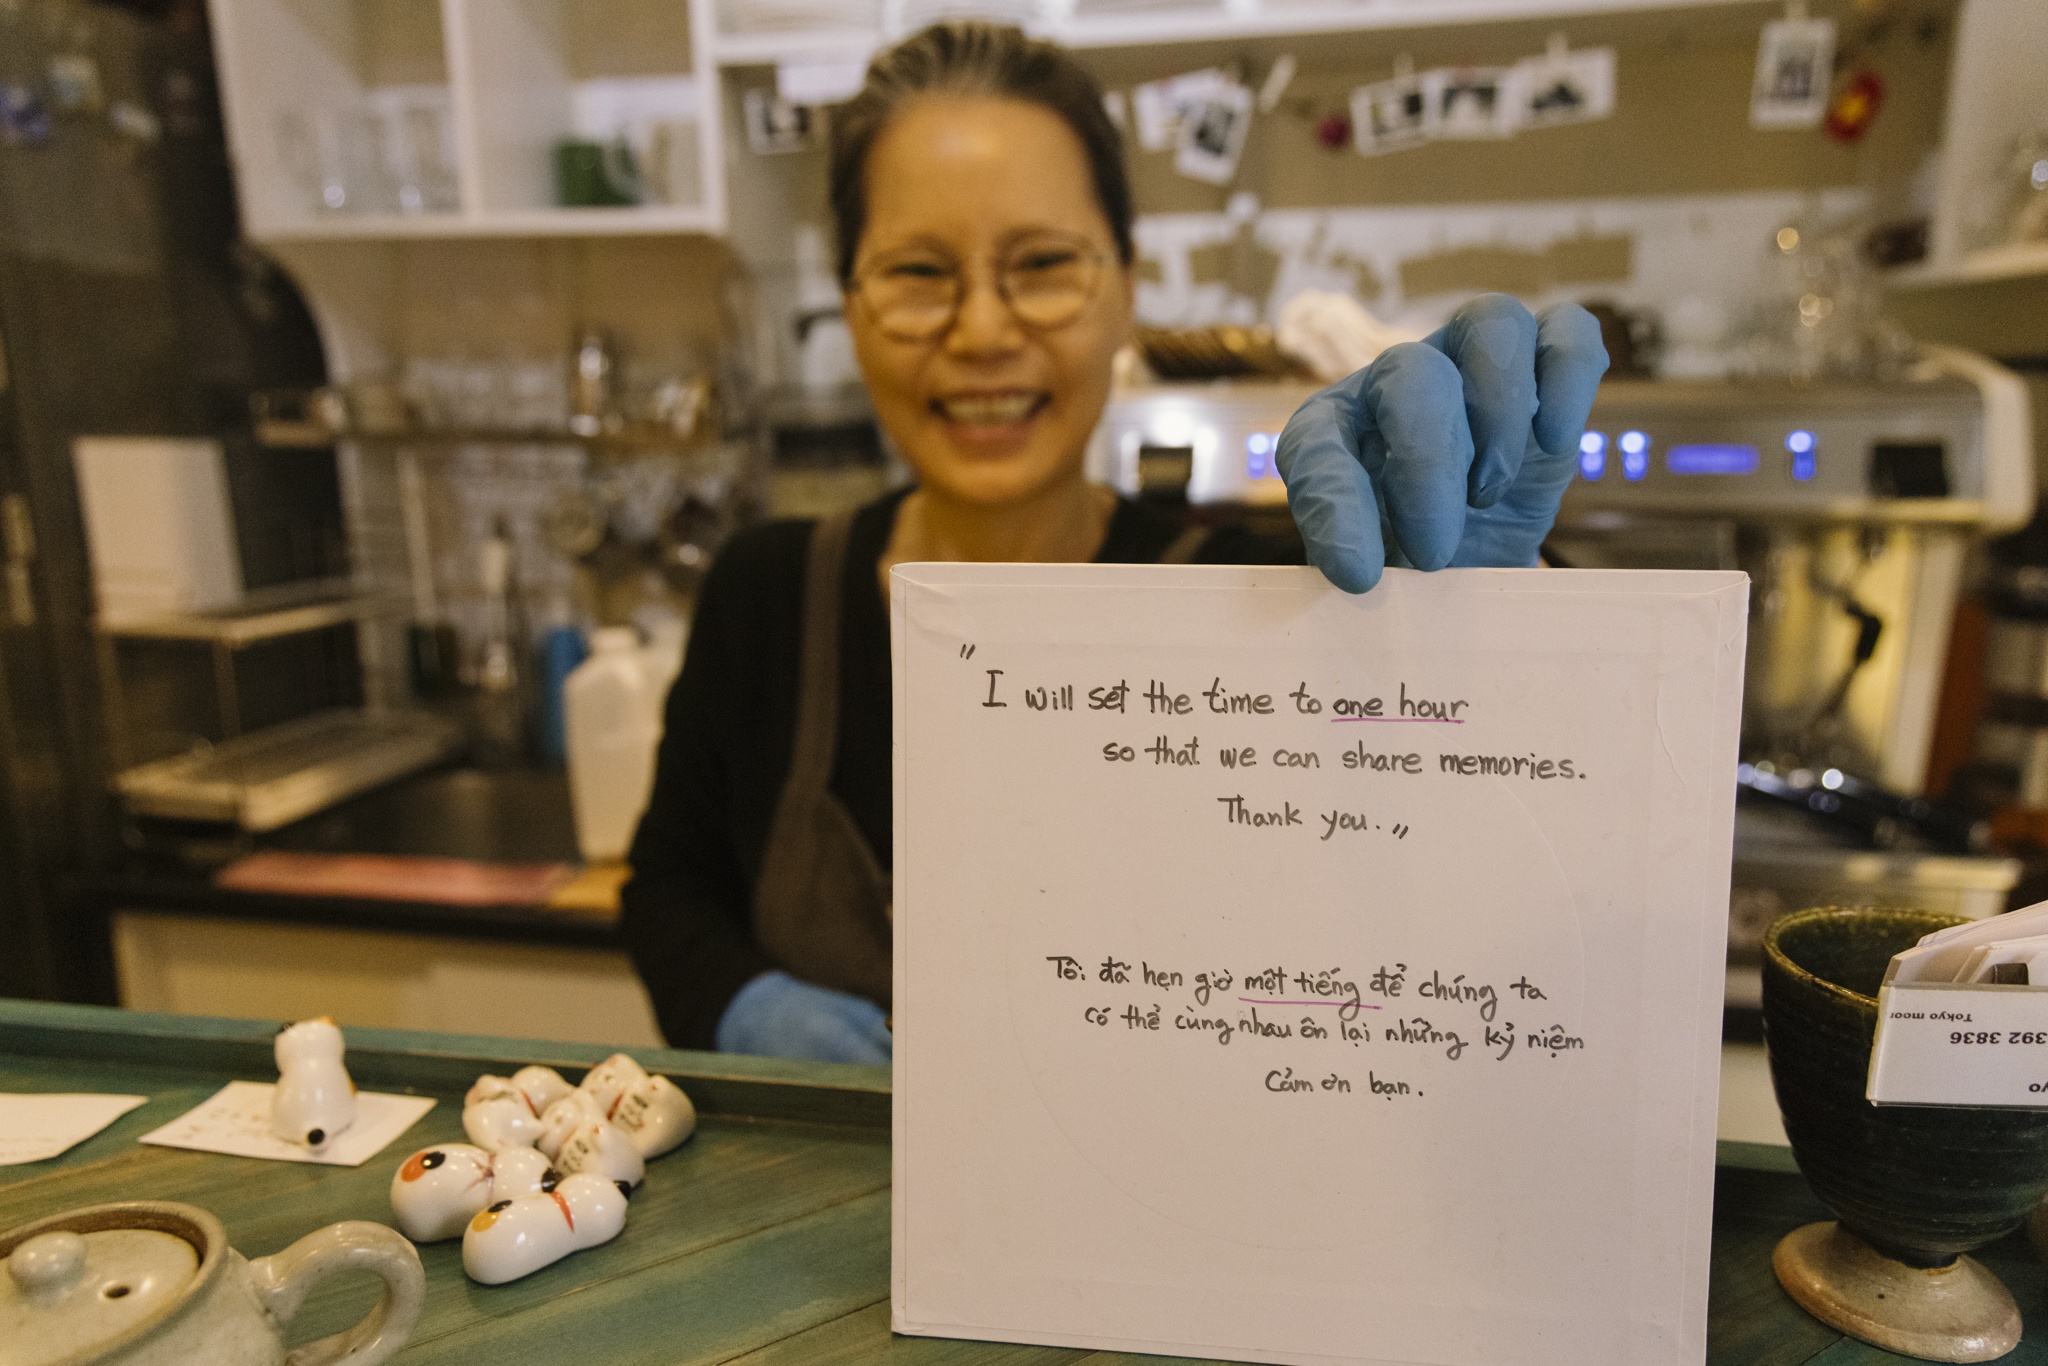 " I will set the time to one hour
so that we can share memories.
Thank you. "
Tôi đã hẹn giờ một tiếng để chúng ta
có thể cùng nhau ôn lại những kỷ niệm
Cảm ơn bạn.
Tokyo moon
392 3836